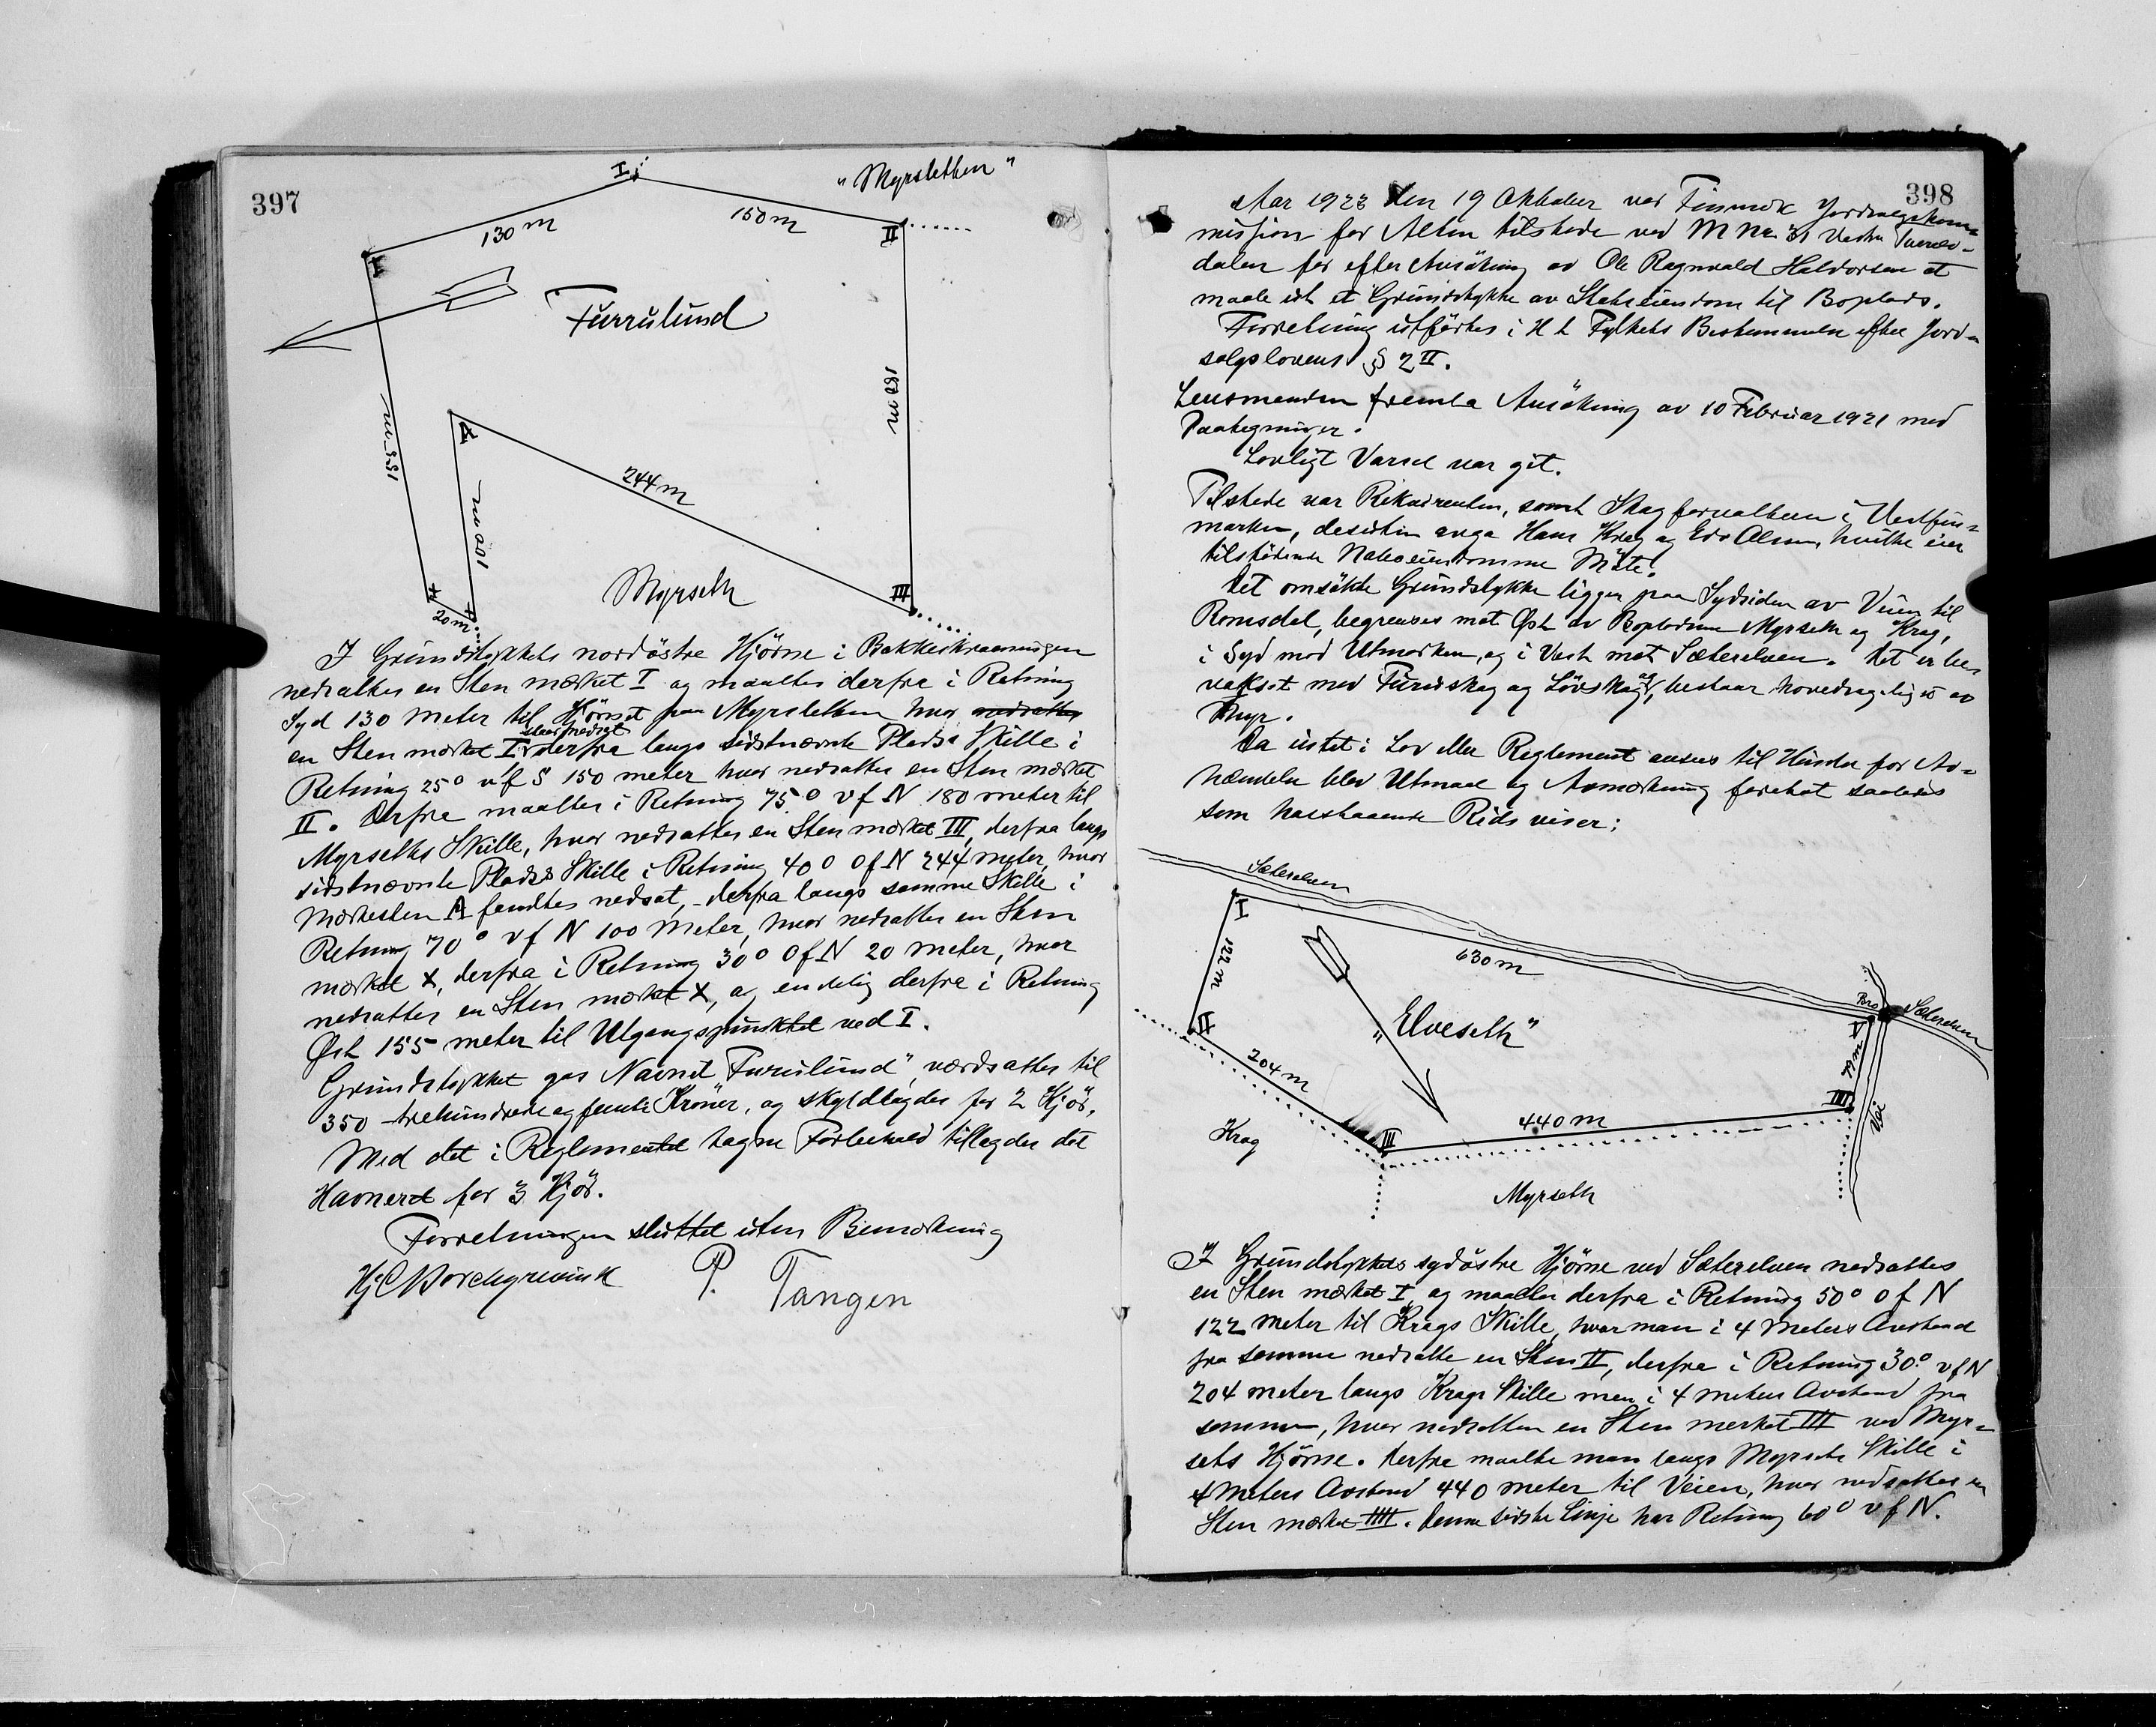 397
"Myrsletten"
I
130 m
150 m
II
I
Furrulund
180 m
155 m
A
100 m
244 m
Myrseth
III
X
X
20 m
I Grundstykkets nordöstre Hjörne i Bakkeskraaningen
nedsattes en Sten mærket I og maaltes derfra i Retning
Syd 130 meter til Hjörnet paa Myrsletten hvor nedsattes
en Sten mærket I derfra langs sidstnævnte Plads Skille i
Retning 25° v f S 150 meter hvor nedsattes en Sten mærket
II. Derfra maaltes i Retning 75° v f N 180 meter til
Myrseths Skille, hvor nedsattes en Sten mærket III, derfra langs
sidstnævnte Plads's Skille i Retning 40° O f N 244 meter, hvor
Mærkesten A fandtes nedsat, derfra langs samme Skille i
Retning 70° v f N 100 Meter, hvor nedsattes en Sten
mærket X, derfra i Retning 30° O f N 20 meter, hvor
nedsattes en Sten mærket X, og endelig derfra i Retning
Øst 155 meter til Utgangspunktet ved I.
Grundstykket gas Navnet "Furulund", værdsattes til
350 - trehundrede og femti Kroner, og skyldlagdes for 2 Kjör.
Med det i Reglementet tagne Forbehold tillagdes det
Havneret for 3 Kjör.
Forretningen sluttet uten Bemærkning
Hj C Borchgrevink P. Tangen
398
Aar 1923 den 19 Oktober var Finmark Jordsalgskom=
mission for Alten tilstede ved M No 31 Vestre Tverelv-
dalen for efter Ansökning av Ole Ragnvald Haldorsen at
maale ut et Grundstykke av Statseiendom til Boplads.
Forretning utförtes i H t Fylkets Bestemmelse efter Jord=
salgslovens § 2 II.
Lensmanden fremla Ansökning av 10 Februar 1921 med
Paategninger.
Lovligt Varsel var git.
Tilstede var Rekvirenten, samt Skogforvalteren i Vestfin=
marken, desuten Hans Krag og Edv Olsen, hvilke eier
tilstötende Naboeiendomme Möte.
Det omsökte Grundstykke ligger paa Sydsiden av Veien til
Romsdal, begrenses mot Øst av Bopladsene Myrseth og Krag,
i Syd mod Utmarken, og i Vest mot Sæterelven. Det er be=
vokset med Furuskog og Lövskog, bestaar hovedsagelig av
Myr.
Da intet i Lov eller Reglement ansees til Hinder for Av=
hændelse blev Utmaal og Avmerkning foretat saaledes
som hosstaaende Rids viser:
Sæterelven
I
122 m
630 m
II
"Elveseth"
Bro
Sæterelven
204 m
III
440 m
IIII
Vei
Krag
Myrseth
I Grundstykkets sydöstre Hjörne ved Sæterelven nedsattes
en Sten mærket I og maaltes derfra i Retning 50° O f N
122 meter til Krags Skille, hvor man i 4 Meters Avstand
fra samme nedsatte en Sten II, derfra i Retning 30° v f N
204 meter langs Krags Skille men i 4 meters Avstand fra
samme, hvor nedsattes en Sten merket III ved Myr=
sets Hjörne. Derfra maalte man langs Myrsets Skille i
4 Meters Avstand 440 meter til Veien, hvor nedsattes en
Sten mærket IIII. Denne sidste Linje har Retning 60° v f N.